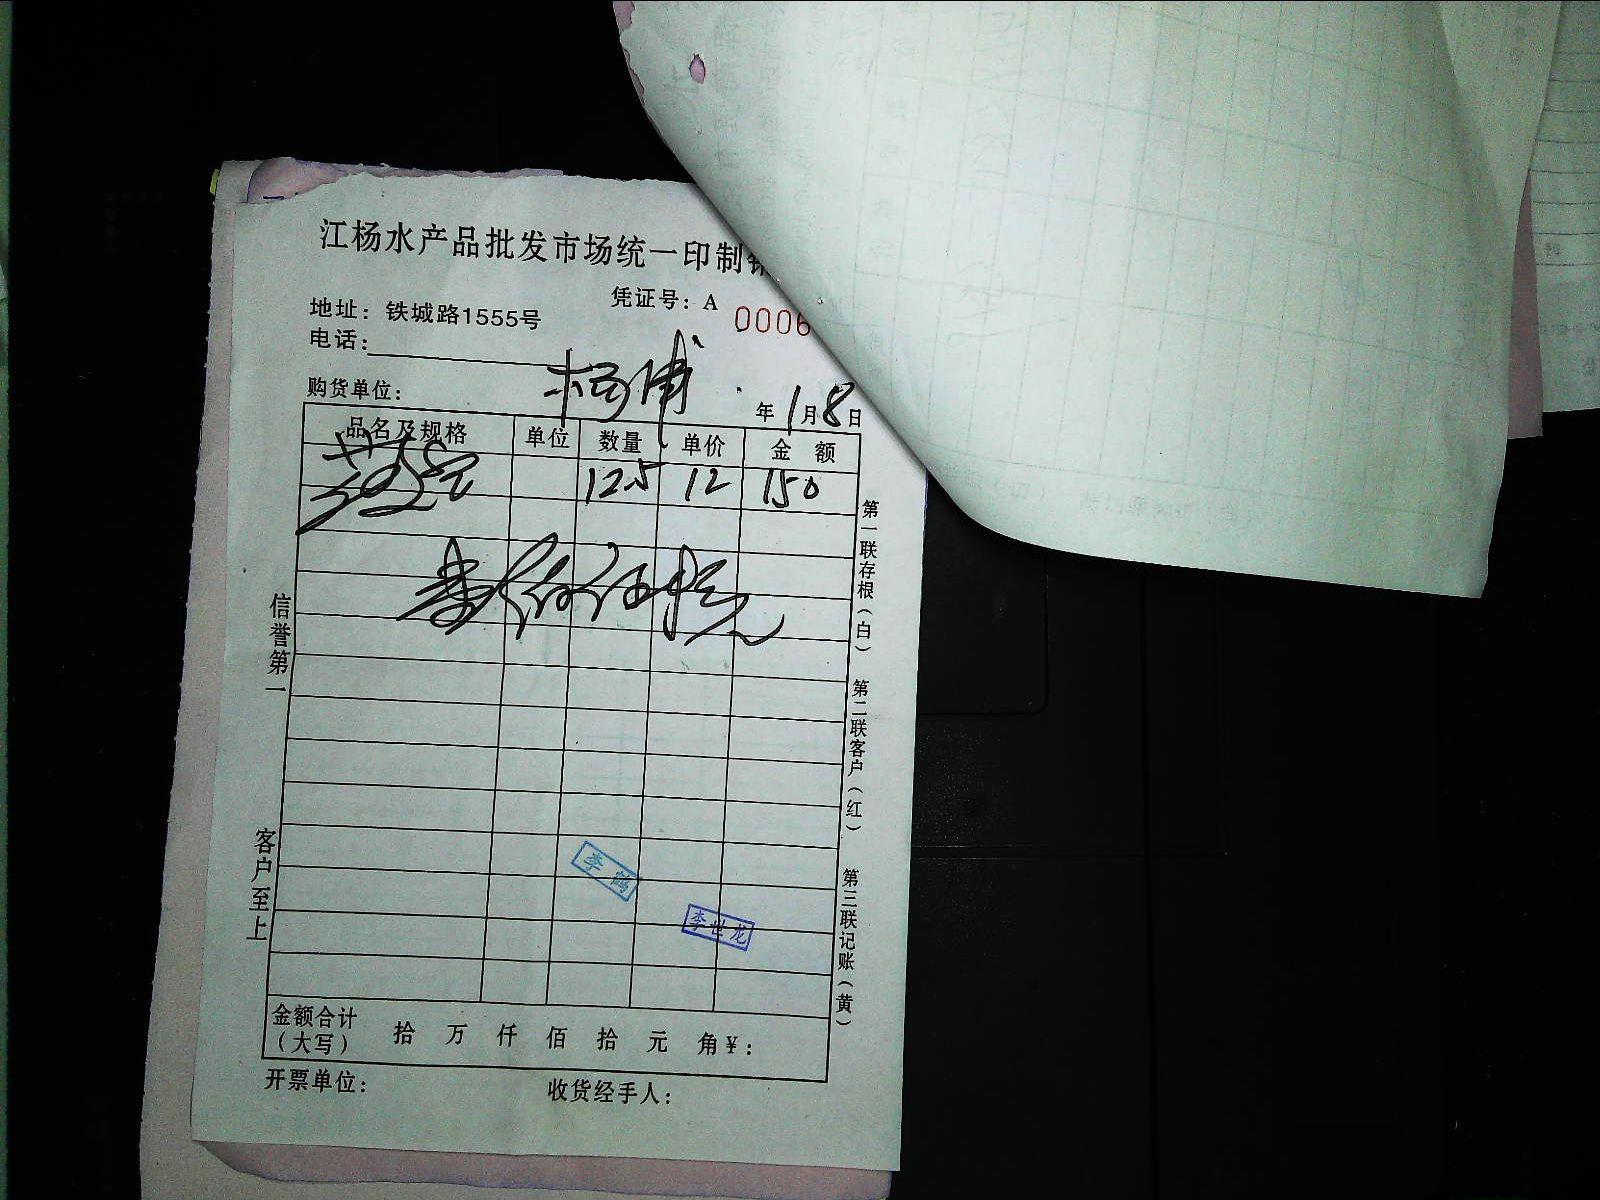 江杨水产品批发市场统一印制
凭证号：A 0006
地址：铁城路1555号
电话：
购货单位： 杨浦
年1月8日
品名及规格 单位 数量 单价 金额
12.5 12 150
信誉第一
客户至上
第一联存根（白）
第二联客户（红）
第三联记账（黄）
李鹤
李世龙
金额合计（大写） 拾 万 仟 佰 拾 元 角￥：
开票单位： 收货经手人：